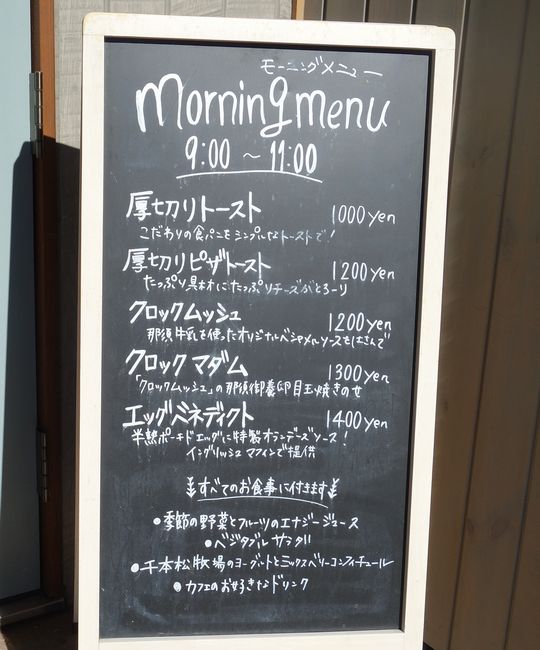 モーニングメニュー
morning menu
9:00 ～ 11:00
厚切りトースト 1000yen
こだわりの食パンをシンプルなトーストで！
厚切りピザトースト 1200yen
たっぷり具材にたっぷりチーズがとろーり
クロックムッシュ 1200yen
那須牛乳を使ったオリジナルベシャメルソースをはさんで
クロックマダム 1300yen
「クロックムッシュ」の那須御養卵目玉焼きのせ
エッグベネディクト 1400yen
半熟ポーチドエッグに特製オランデーズソース！
イングリッシュマフィンで提供
すべてのお食事に付きます
●季節の野菜とフルーツのエナジージュース
●ベジタブルサラダ
●千本松牧場のヨーグルトとミックスベリーコンフィチュール
●カフェのお好きなドリンク